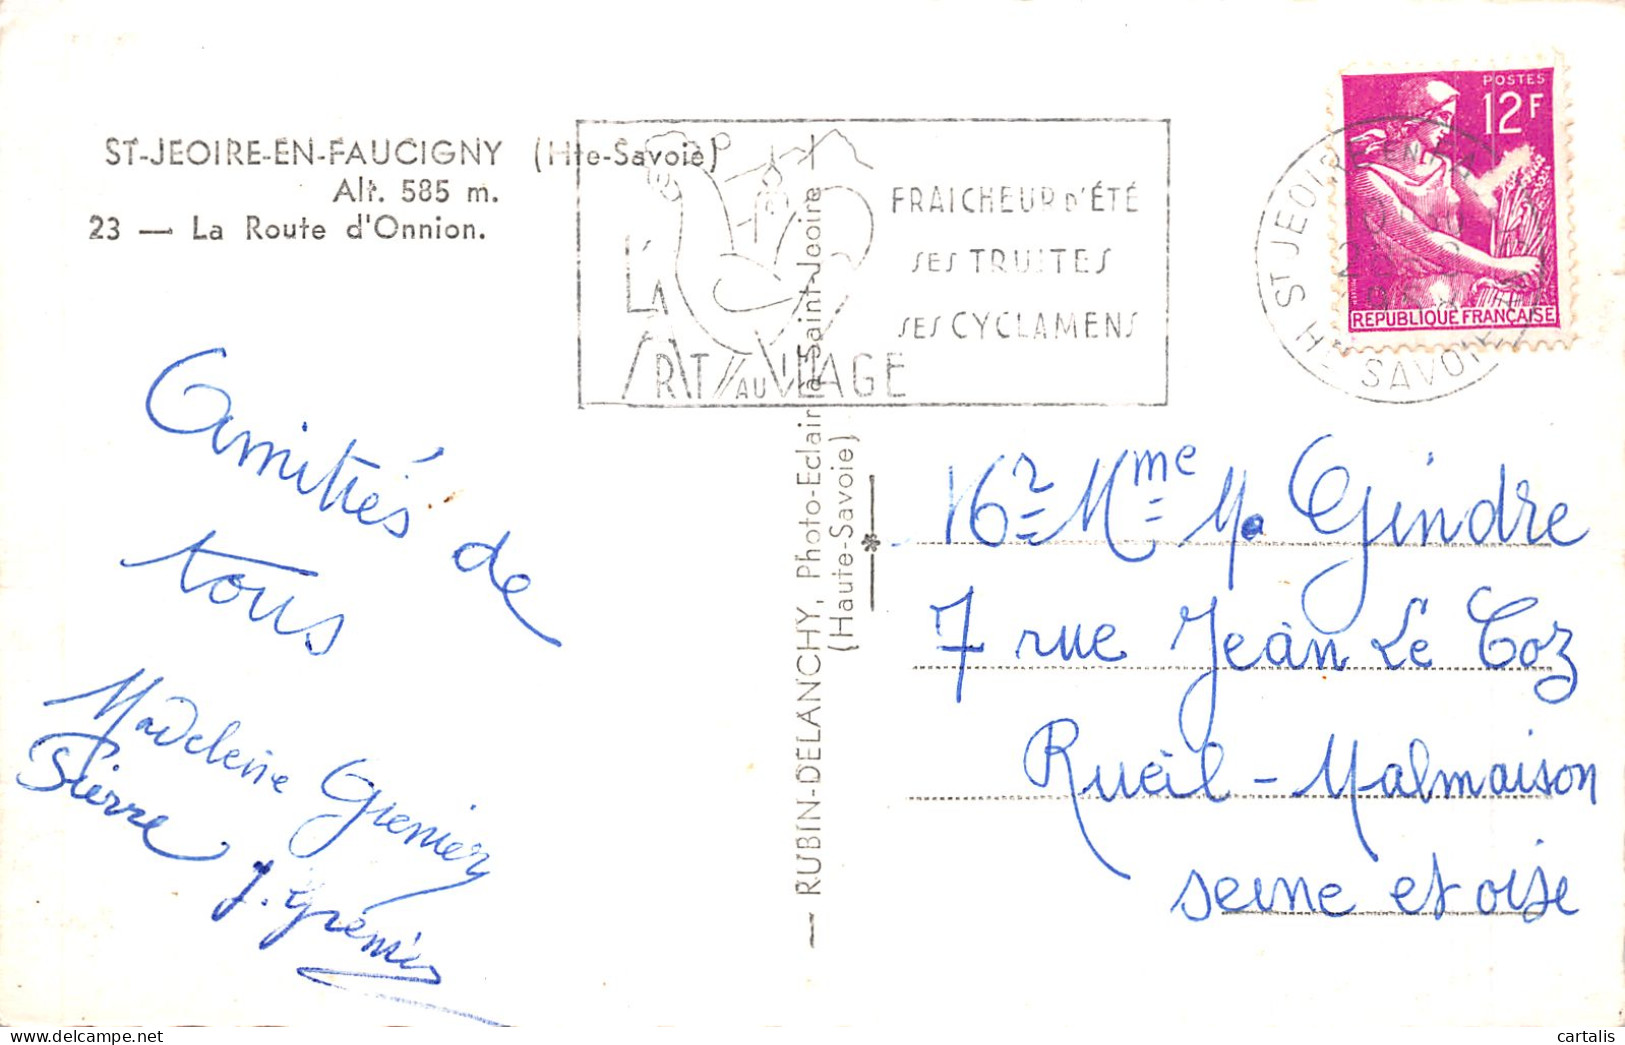 ST-JEOIRE-EN-FAUCIGNY (Hte-Savoie)
Alt. 585 m.
23 — La Route d'Onnion.
FRAICHEUR D'ÉTÉ
SES TRUITES
SES CYCLAMENS
L'A
ARTS AU VILLAGE
POSTES
12F
REPUBLIQUE FRANÇAISE
ST JEOIRE EN FA
HTE SAVOIE
Amitiés de
tous
Madeleine Grenier
Pierre
J. Grenier
— RUBIN-DELANCHY, Photo-Eclair à Saint-Jeoire —
(Haute-Savoie)
Mr Mme M. Gindre
7 rue Jean Le Coz
Rueil - Malmaison
seine et oise
cartalis